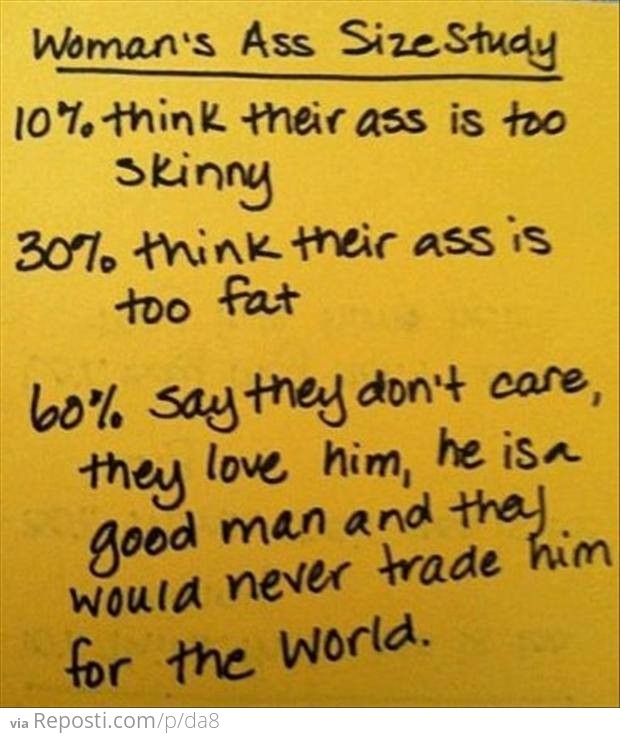 Woman's Ass Size Study
10% think their ass is too
skinny
30% think their ass is
too fat
60% say they don't care,
they love him, he is a
good man and they
would never trade him
for the world.
via Reposti.com/p/da8